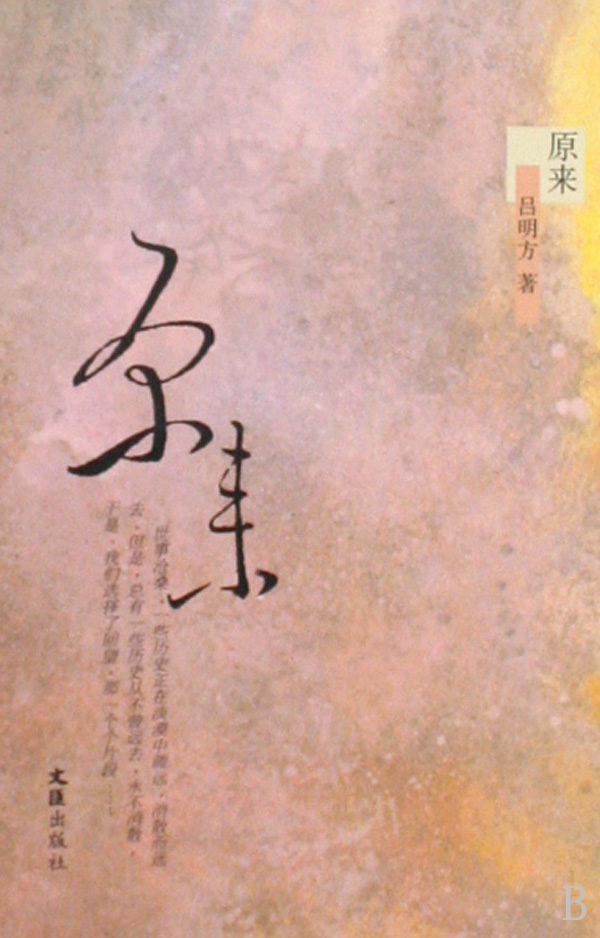 原来
吕明方 著
原来
世事沧桑，一些历史正在中，消散而远
去，但是，总有一些历史从不曾远去，永不消散。
于是，我们选择了回望，那一个个片段……
文匯出版社
B